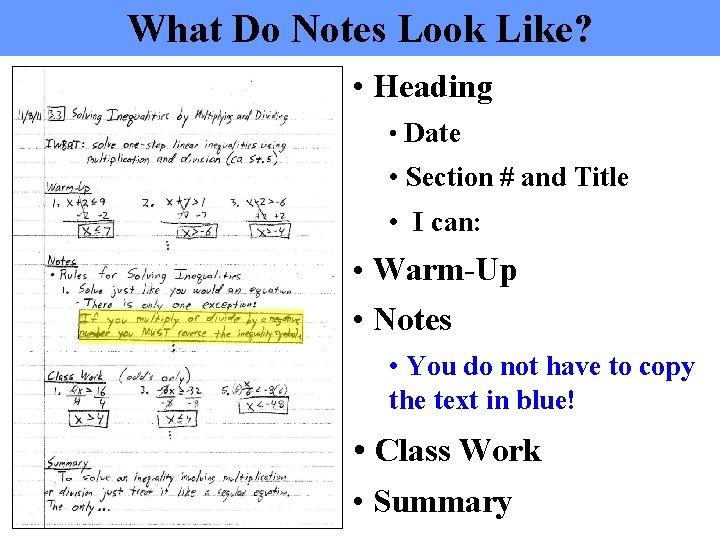 What Do Notes Look Like?
11/3/11 3.3 Solving Inequalities by Multiplying and Dividing
IWBAT: solve one-step linear inequalities using
multiplication and division (CA St. 5)
Warm-Up
1. x+2≤9 2. x+7>1 3. x+2>-6
-2 -2 -7 -7 +2 +2
x≤7 x>-6 x>-8
Notes
• Rules for Solving Inequalities
1. Solve just like you would an equation
- There is only one exception:
If you multiply or divide by a negative
number you MUST reverse the inequality symbol.
Class Work (odd's only)
1. 4x>16 3. -8x≥-32 5. <-8(6)
4 4 -8 -8
x>4 x≤4 x<-48
Summary
To solve an inequality involving multiplication
or division just treat it like a regular equation.
The only...
• Heading
• Date
• Section # and Title
• I can:
• Warm-Up
• Notes
• You do not have to copy
the text in blue!
• Class Work
• Summary